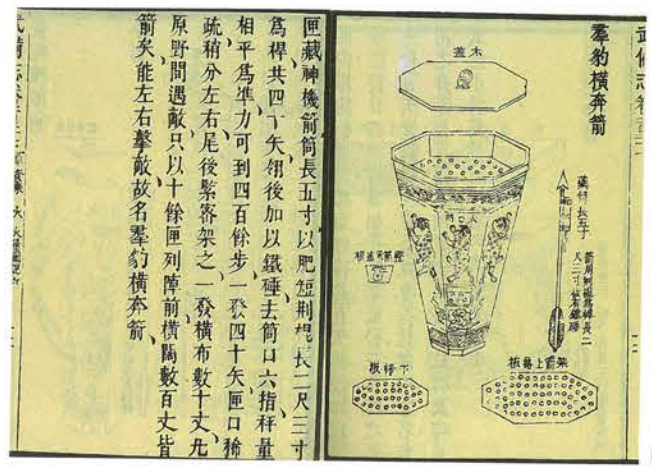 羣豹橫奔箭
木蓋
藥筒長五寸
架箭上格板
下格板
匣藏神機箭筒長五寸以肥短荆棍長二尺三寸
爲桿共四十矢翎後加以鐵硾去筒口六指秤量
相平爲準力可到四百餘步一發四十矢匣口稀
疏稍分左右尾後緊密架之一發橫布數十丈凡
原野間遇敵只以十餘匣列陣前橫闊數百丈皆
箭矣能左右擊敵故名羣豹橫奔箭